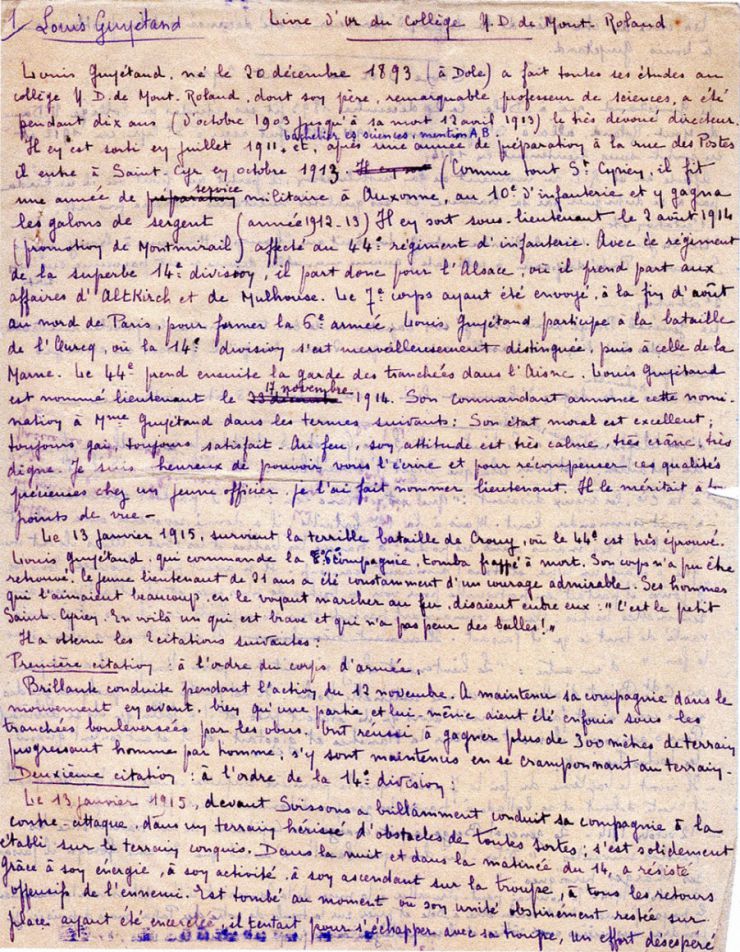 1 Louis Guyétand Livre d'or du collège N.D. de Mont-Roland
Louis Guyétand, né le 20 décembre 1893 (à Dole) a fait toutes ses études au
collège N.D. de Mont-Roland, dont son père, remarquable professeur de sciences, a été
pendant dix ans (d'octobre 1903 jusqu'à sa mort 12 avril 1913) le très dévoué directeur.
bachelier es sciences, mention A.B
Il en est sorti en juillet 1911, et, après une année de préparation à la rue des Postes
il entre à Saint-Cyr en octobre 1913. (Comme tout St Cyrien, il fit
service
une année de préparation militaire à Auxonne, au 10e d'infanterie et y gagna
les galons de sergent (année 1912-13) Il en sort sous-lieutenant le 2 août 1914
(promotion de Montmirail) affecté au 44e régiment d'infanterie. Avec ce régiment
de la superbe 14e division, il part donc pour l'Alsace, où il prend part aux
affaires d'Altkirch et de Mulhouse. Le 7e corps ayant été envoyé, à la fin d'août
au nord de Paris, pour former la 6e armée, Louis Guyétand participe à la bataille
de l'Ourcq, où la 14e division s'est merveilleusement distinguée, puis à celle de la
Marne. Le 44e prend ensuite la garde des tranchées dans l'Aisne. Louis Guyétand
17 novembre
est nommé lieutenant le 1914. Son commandant annonce cette nomi-
nation à Mme Guyétand dans les termes suivants: Son état moral est excellent;
toujours gai, toujours satisfait. Au feu, son attitude est très calme, très crâne, très
digne. Je suis heureux de pouvoir vous l'écrire et pour récompenser ces qualités
précieuses chez un jeune officier, je l'ai fait nommer lieutenant. Il le méritait à tous
points de vue -
Le 13 janvier 1915, survient la terrible bataille de Crouy, où le 44e est très éprouvé.
Louis Guyétand, qui commande la compagnie, tomba frappé à mort. Son corps n'a pu être
retrouvé. Le jeune lieutenant de 21 ans a été constamment d'un courage admirable. Ses hommes
qui l'aimaient beaucoup, en le voyant marcher au feu, disaient entre eux: "C'est le petit
Saint-Cyrien. En voilà un qui est brave et qui n'a pas peur des balles!"
Il a obtenu les 2 citations suivantes:
Première citation: à l'ordre du corps d'armée.
Brillante conduite pendant l'action du 12 novembre. A maintenu sa compagnie dans le
mouvement en avant, bien qu'une partie, et lui-même aient été enfouis sous les
tranchées bouleversées par les obus. Ont réussi à gagner plus de 300 mètres de terrain
progressant homme par homme; s'y sont maintenus en se cramponnant au terrain-
Deuxième citation: à l'ordre de la 14e division
Le 13 janvier 1915, devant Soissons a brillamment conduit sa compagnie à la
contre-attaque, dans un terrain hérissé d'obstacles de toutes sortes; s'est solidement
établi sur le terrain conquis. Dans la nuit et dans la matinée du 14, a résisté
grâce à son énergie, à son activité, à son ascendant sur la troupe, à tous les retours
offensifs de l'ennemi. Est tombé au moment où son unité obstinément restée sur
place ayant été encerclée, il tentait pour s'échapper avec sa troupe, un effort désespéré